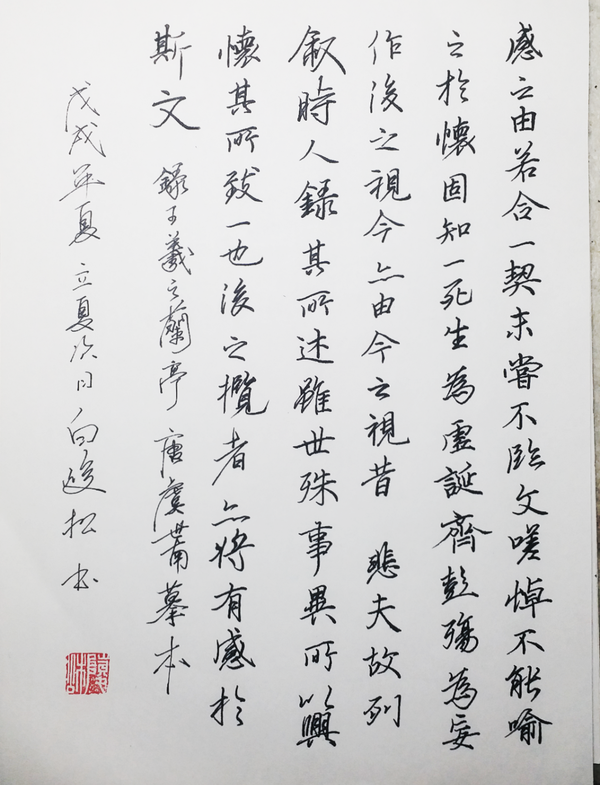 感之由若合一契未嘗不臨文嗟悼不能喻
之於懷固知一死生為虛誕齊彭殤為妄
作後之視今亦由今之視昔 悲夫故列
叙時人錄其所述雖世殊事異所以興
懷其所致一也後之攬者亦將有感於
斯文 錄王羲之蘭亭 唐虞世南摹本
戊戌年夏立夏次日白松书